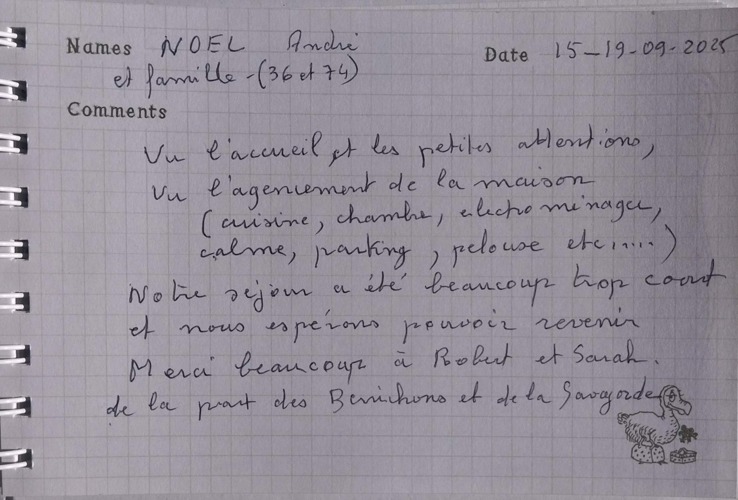 Names NOEL André Date 15-19-09-2025
et famille - (36 et 74)
Comments
Vu l'accueil, et les petites attentions,
Vu l'agencement de la maison
(cuisine, chambre, electroménager,
calme, parking, pelouse etc.....)
Notre séjour a été beaucoup trop court
et nous espérons pouvoir revenir
Merci beaucoup à Robert et Sarah.
de la part des Berrichons et de la Savoyarde